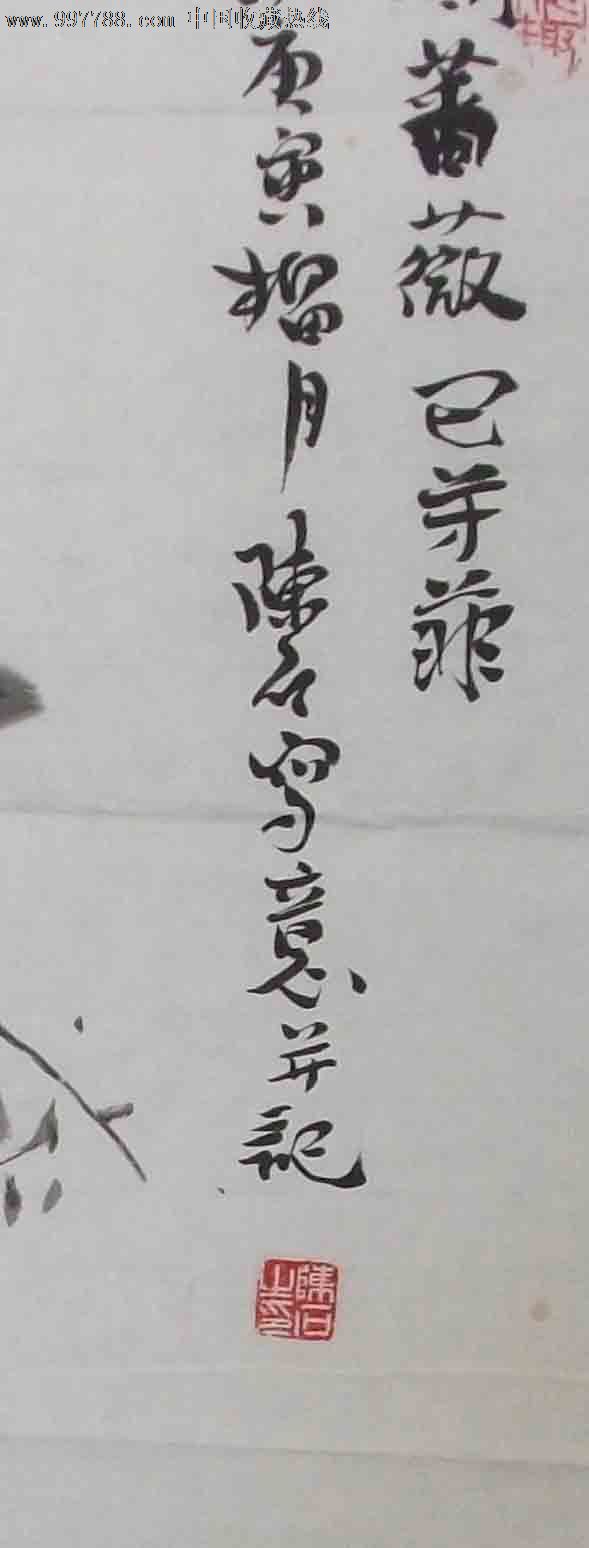 www.997788.com 中国收藏热线
薔薇已芳菲
庚寅榴月陳石寫意并記
陳石
之印